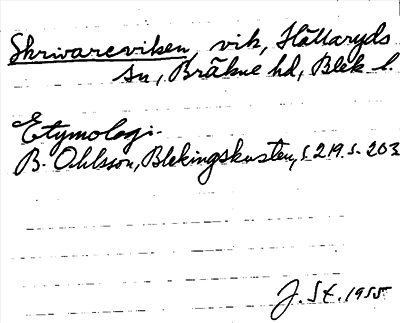 Skrivareviken, vik, Hällaryds
sn, Bräkne hd, Blek l.
Etymologi.
B. Ohlsson, Blekingskusten, s. 219. s. 203
J. St. 1955